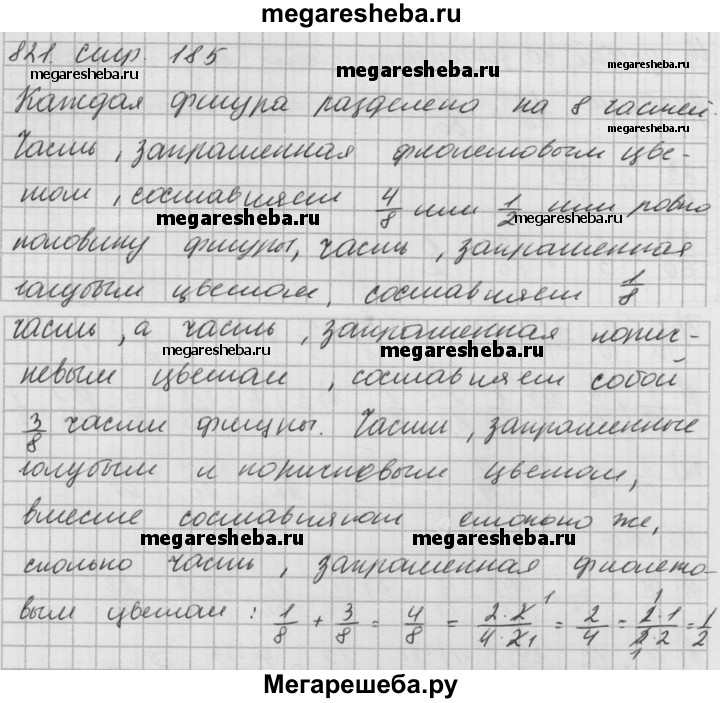 megaresheba.ru
821. стр. 185
megaresheba.ru megaresheba.ru
Каждая фигура разделена на 8 частей.
megaresheba.ru
Часть, закрашенная фиолетовым цве-
том, составляет 4/8 или 1/2 или ровно
megaresheba.ru megaresheba.ru
половину фигуры, часть, закрашенная
голубым цветом, составляет 1/8
часть, а часть, закрашенная корич-
megaresheba.ru megaresheba.ru
невым цветом, составляет собой
3/8 части фигуры. Части, закрашенные
голубым и коричновым цветом,
вместе составляют столько же,
megaresheba.ru megaresheba.ru
сколько часть, закрашенная фиолето-
вым цветом: 1/8 + 3/8 = 4/8 = 2·2/4·2 1 1 = 2/4 = 2·1/2·2 1 1 = 1/2
Мегарешеба.ру